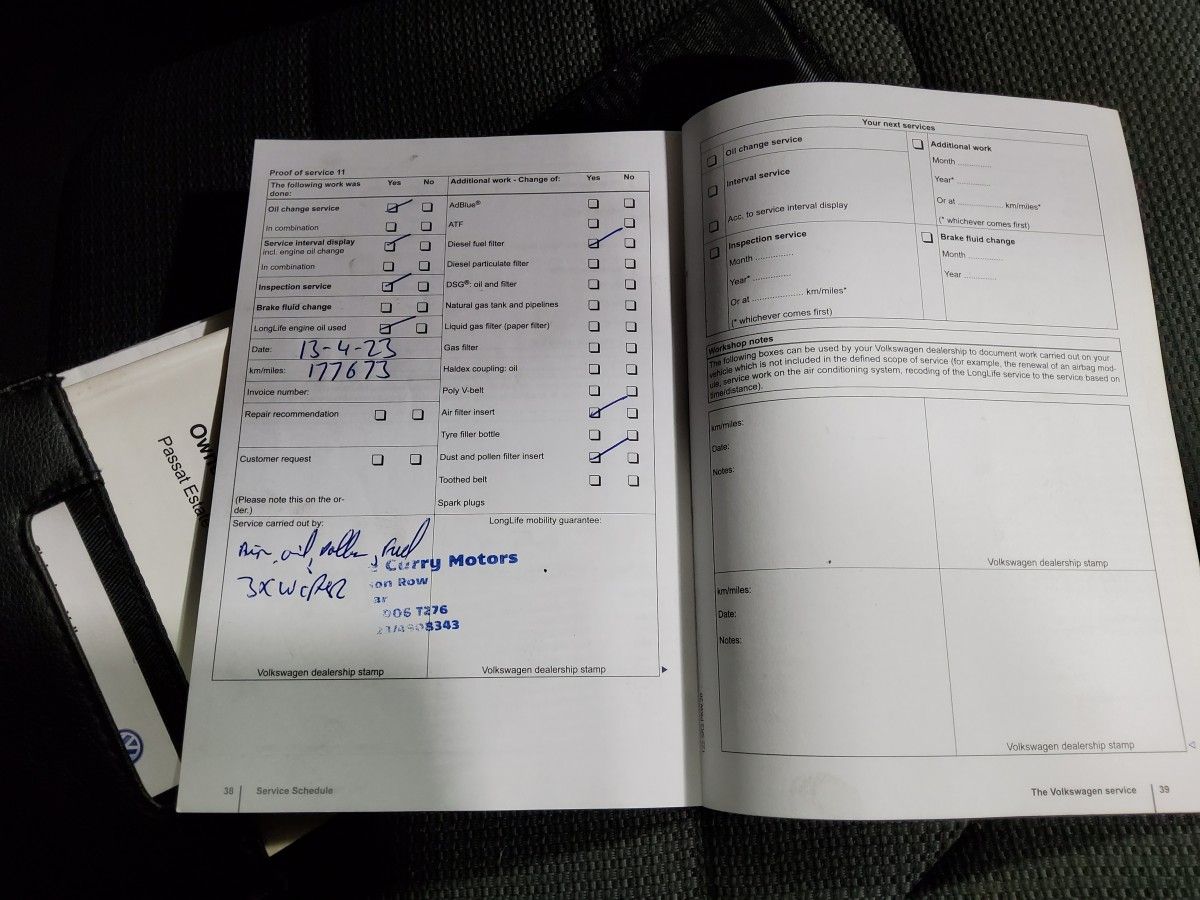 Proof of service 11
The following work was done:
Yes
No
Oil change service
In combination
Service interval display
incl. engine oil change
In combination
Inspection service
Brake fluid change
LongLife engine oil used
Date: 13-4-23
km/miles: 177673
Invoice number:
Repair recommendation
Customer request
(Please note this on the or-
der.)
Additional work - Change of:
Yes
No
AdBlue®
ATF
Diesel fuel filter
Diesel particulate filter
DSG®: oil and filter
Natural gas tank and pipelines
Liquid gas filter (paper filter)
Gas filter
Haldex coupling: oil
Poly V-belt
Air filter insert
Tyre filler bottle
Dust and pollen filter insert
Toothed belt
Spark plugs
Service carried out by:
Air, oil, Pollen, Fuel
3X
Curry Motors
on Row
ar
006 T276
8343
Volkswagen dealership stamp
LongLife mobility guarantee:
Volkswagen dealership stamp
38
Service Schedule
Your next services
Oil change service
Interval service
Acc. to service interval display
Inspection service
Month ..............
Year* ..............
Or at .................... km/miles*
(* whichever comes first)
Additional work
Month ..............
Year* ..............
Or at .................... km/miles*
(* whichever comes first)
Brake fluid change
Month ..............
Year ..............
Workshop notes
The following boxes can be used by your Volkswagen dealership to document work carried out on your
vehicle which is not included in the defined scope of service (for example, the renewal of an airbag mod-
ule, service work on the air conditioning system, recoding of the LongLife service to the service based on
time/distance).
km/miles:
Date:
Notes:
Volkswagen dealership stamp
km/miles:
Date:
Notes:
Volkswagen dealership stamp
The Volkswagen service
39
Passat Estate